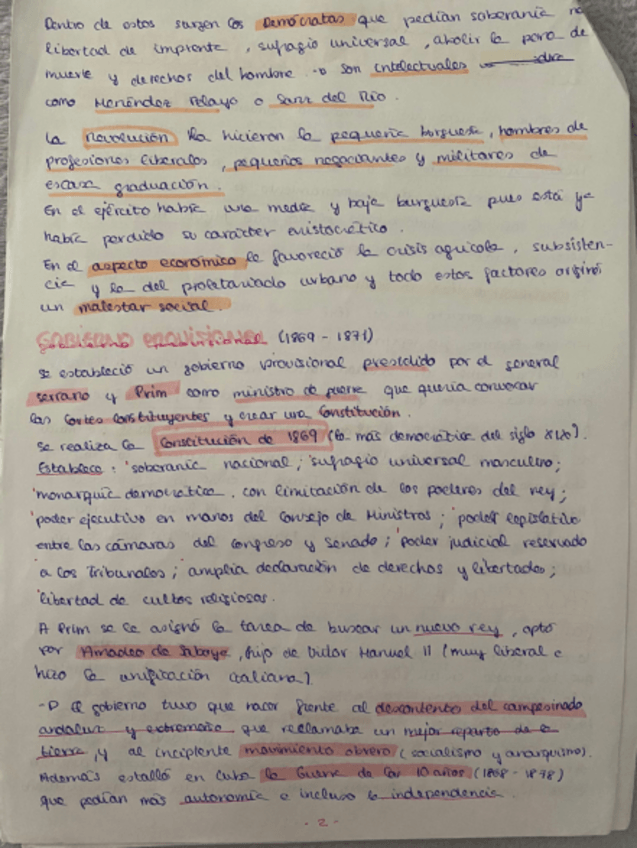 Dentro de estos surgen los Demócratas que pedían soberanía
libertad de imprenta, sufragio universal, abolir la pena de
muerte y derechos del hombre. → son intelectuales
como Menéndez Pelayo o Sanz del Río.
La Revolución la hicieron la pequeña burguesía, hombres de
profesiones liberales, pequeños negociantes y militares de
escasa graduación.
En el ejército había una media y baja burguesía pues está ya
había perdido su carácter aristocrático.
En el aspecto económico le favoreció la crisis agrícola, subsisten-
cia y la del proletariado urbano y todo estos factores originó
un malestar social.
GOBIERNO PROVISIONAL (1869 - 1871)
Se estableció un gobierno provisional presidido por el general
Serrano y Prim como ministro de guerra que quería convocar
las Cortes Constituyentes y crear una Constitución.
Se realiza la Constitución de 1869 (la más democrática del siglo XIX).
Establece: 'soberanía nacional; 'sufragio universal masculino;
'monarquía democrática. con limitación de los poderes del rey;
'poder ejecutivo en manos del Consejo de Ministros; 'poder legislativo
entre las cámaras del Congreso y Senado; 'poder judicial reservado
a los Tribunales; 'amplia declaración de derechos y libertades;
'libertad de cultos religiosos.
A Prim se le asignó la tarea de buscar un nuevo rey, optó
por Amadeo de Saboya, hijo de Victor Manuel II (muy liberal e
hizo la unificación italiana)
→ El gobierno tuvo que hacer frente al descontento del campesinado
andaluz y extremeño que reclamaba un mejor reparto de la
tierra, y al incipiente movimiento obrero (socialismo y anarquismo).
Además estalló en Cuba la Guerra de los 10 años (1868 - 1878)
que pedían más autonomía e incluso la independencia.
- 2 -